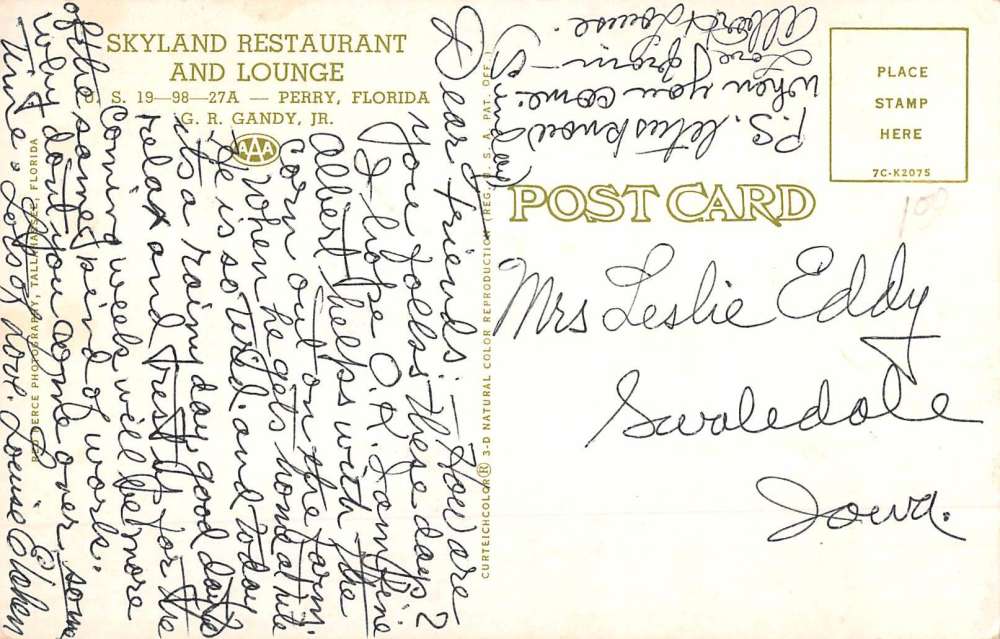 SKYLAND RESTAURANT
AND LOUNGE
U. S. 19—98—27A — PERRY, FLORIDA
G. R. GANDY, JR.
AAA
Dear Friends:— How are
you folks these days?
I hope O.K. I am fine
Albert helps with the
corn out on the farm.
When he gets home at nite
He is so tired. and today
its a rainy day, good day to
relax and rest up for the
Coming week will be more
of the same kind of work..
Why don't you come over some
time. Lots of love. Louise
P.S. let us know
when you come. (Sunday)
Love from—
Albert & Louise.
RED KERCE PHOTOGRAPHY, TALLAHASSEE, FLORIDA
CURTEICHCOLOR® 3-D NATURAL COLOR REPRODUCTION (REG. U. S. A. PAT. OFF.)
POST CARD
PLACE
STAMP
HERE
7C-K2075
Mrs Leslie Eddy
Swaledale
Iowa.